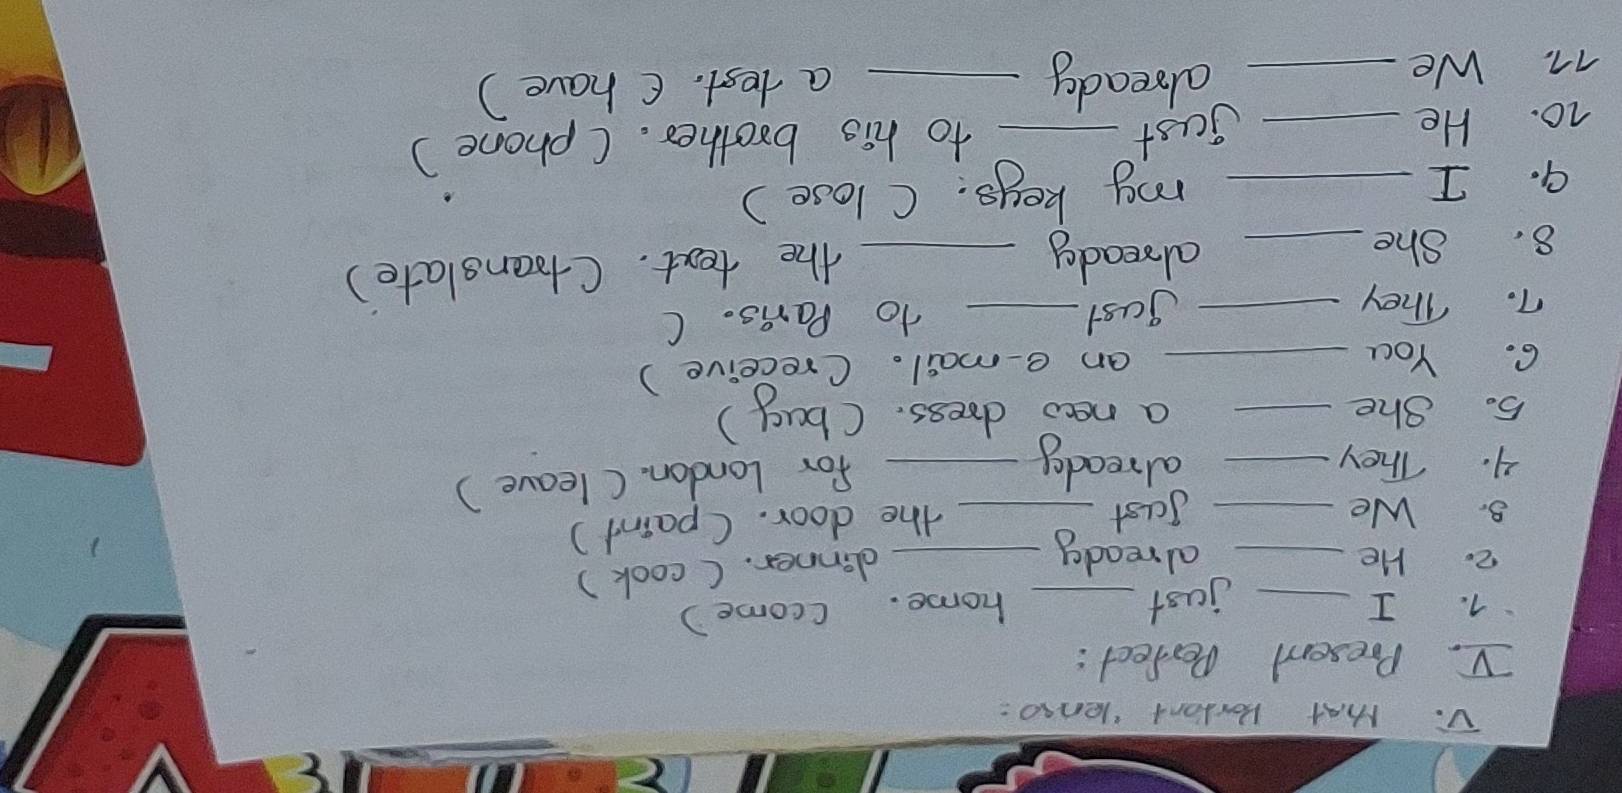 V.
V. Present Perfect:
1. I ____ just ____ home. (come)
2. He ____ already ____ dinner. (cook)
3. We ____ just ____ the door. (paint)
4. They ____ already ____ for London. (leave)
5. She ____ a new dress. (buy)
6. You ____ an e-mail. (receive)
7. They ____ just ____ to Paris. (
8. She ____ already ____ the text. (translate)
9. I ____ my keys. (lose)
10. He ____ just ____ to his brother. (phone)
11. We ____ already ____ a test. (have)